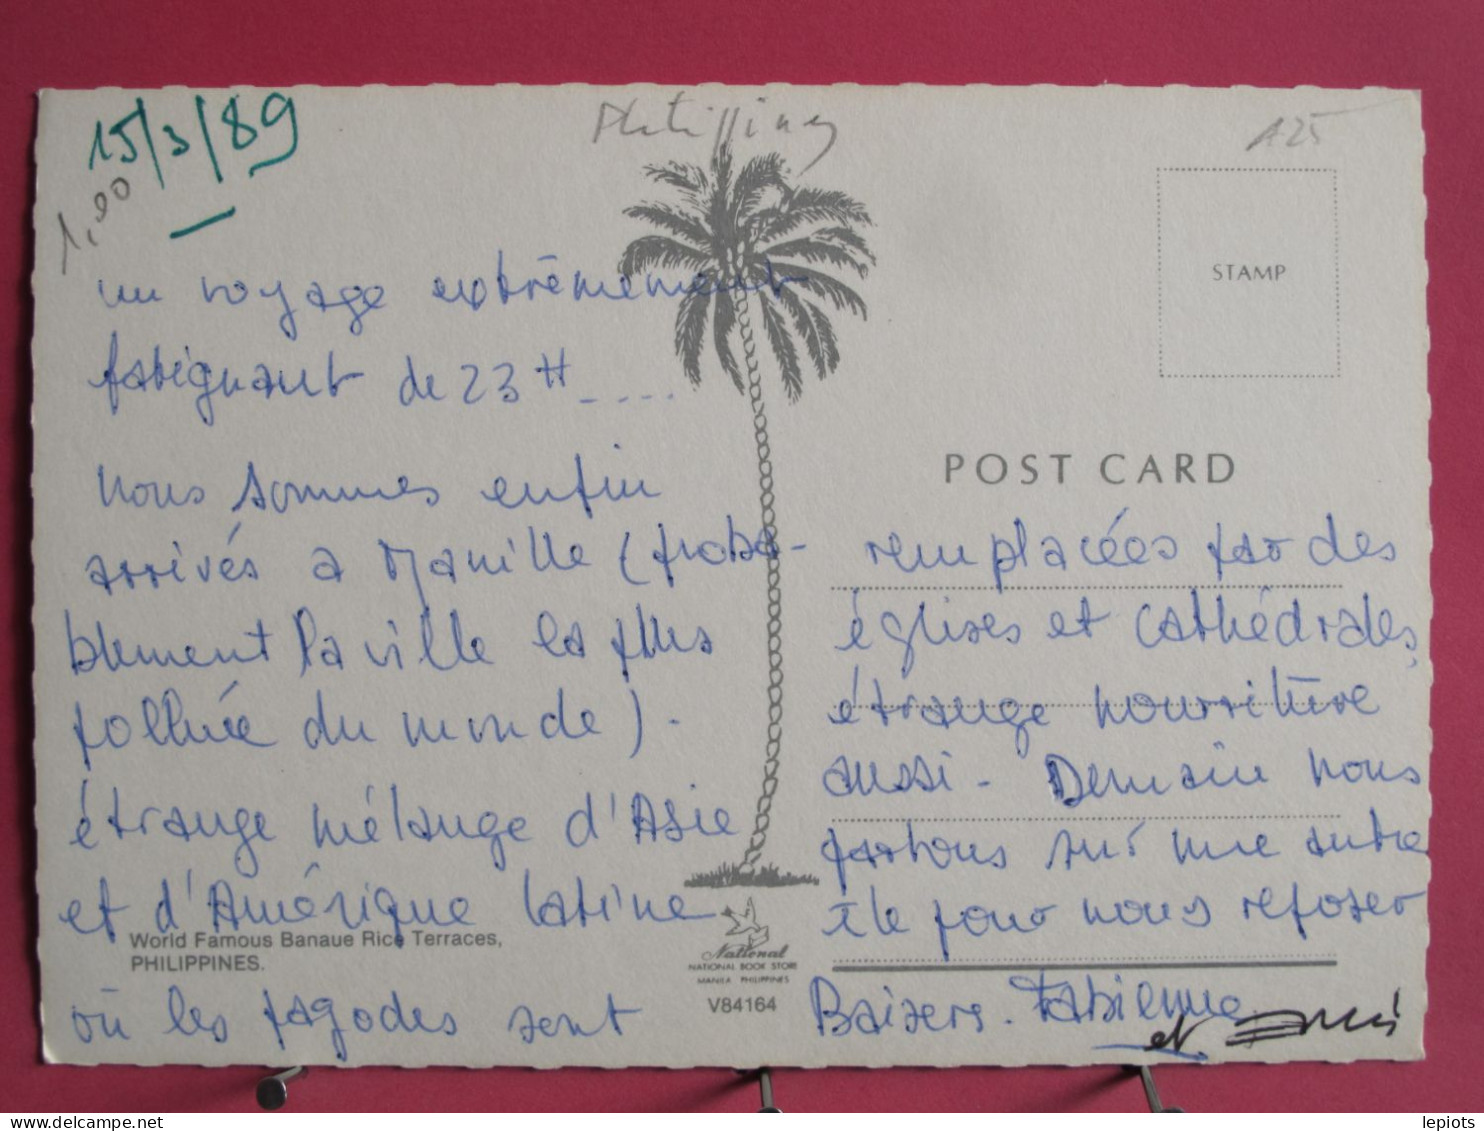 15/3/89
1,00
Philippines
A25
STAMP
un voyage extrêmement
fatiguant de 23 H ....
nous sommes enfin
arrivés a Manille (proba-
blement la ville la plus
polluée du monde).
étrange mélange d'Asie
et d'Amérique latine
où les pagodes sont
World Famous Banaue Rice Terraces,
PHILIPPINES.
National
NATIONAL BOOK STORE
MANILA PHILIPPINES
V84164
POST CARD
remplacées par des
églises et cathédrales,
étrange nourriture
aussi - Demain nous
partons sur une autre
île pour nous reposer
Baisers. Fabienne
et
lepiots